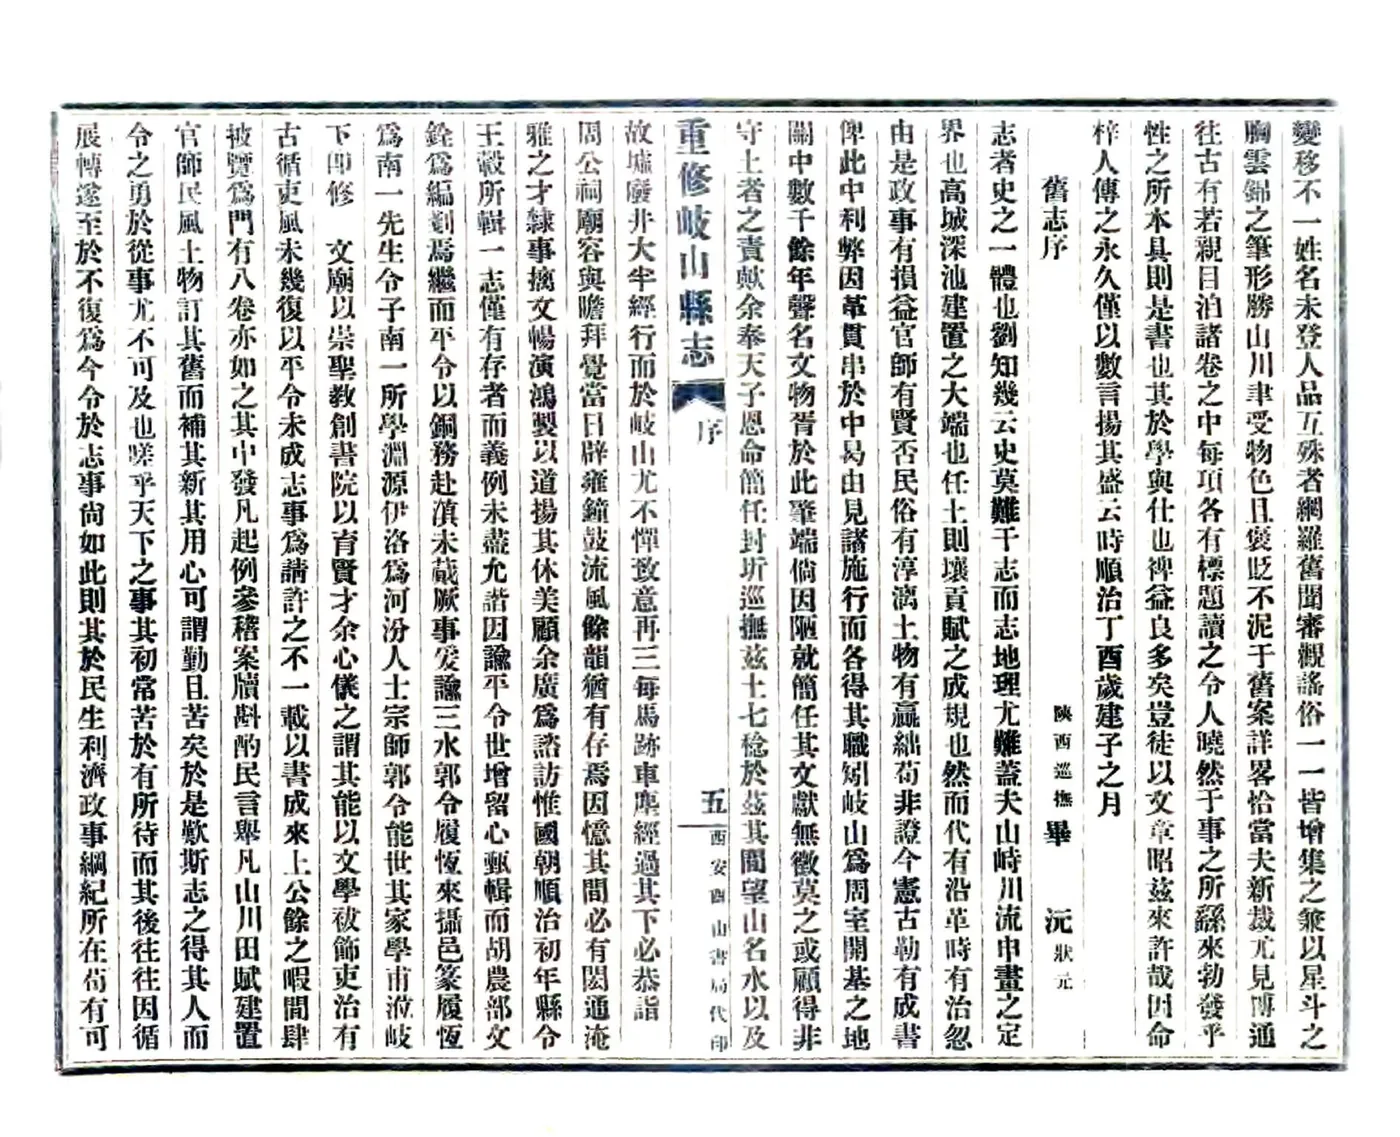 變移不一姓名未登人品互殊者網羅舊聞審觀謠俗一一皆增集之兼以星斗之
胸雲錦之筆形勝山川聿受物色且褒貶不泥于舊案詳畧恰當夫新裁尤見博通
往古有若親目泊諸卷之中每項各有標題讀之令人曉然于事之所繇來勃發乎
性之所本具則是書也其於學與仕也裨益良多矣豈徒以文章昭茲來許哉因命
梓人傳之永久僅以數言揚其盛云時順治丁酉歲建子之月
舊志序 陝西巡撫畢 沅狀元
志者史之一體也劉知幾云史莫難于志而志地理尤難蓋夫山峙川流申畫之定
界也高城深池建置之大端也任土則壤貢賦之成規也然而代有沿革時有治忽
由是政事有損益官師有賢否民俗有淳漓土物有贏絀苟非證今憲古勒有成書
俾此中利弊因革貫串於中曷由見諸施行而各得其職矧岐山為周室開基之地
關中數千餘年聲名文物胥於此肇端倘因陋就簡任其文獻無徵莫之或顧得非
守土者之責歟余奉天子恩命簡任封圻巡撫茲土七稔於茲其間望山名水以及
重修岐山縣志 序 五 西安酉山書局代印
故墟廢井大半經行而於岐山尤不憚致意再三每馬跡車塵經過其下必恭詣
周公祠廟容與瞻拜覺當日辟雍鐘鼓流風餘韻猶有存焉因憶其間必有閎通淹
雅之才隸事摛文暢演鴻製以道揚其休美顧余廣為諮訪惟國朝順治初年縣令
王轂所輯一志僅有存者而義例未盡允諧因諭平令世增留心甄輯而胡農部文
銓為編劃焉繼而平令以銅務赴滇未蕆厥事爰諭三水郭令履恆來攝邑篆履恆
為南一先生令子南一所學淵源伊洛為河汾人士宗師郭令能世其家學甫涖岐
下即修 文廟以崇聖教創書院以育賢才余心儀之謂其能以文學祓飾吏治有
古循吏風未幾復以平令未成志事為請許之不一載以書成來上公餘之暇間肆
披覽為門有八卷亦如之其中發凡起例參稽案牘斟酌民言舉凡山川田賦建置
官師民風土物訂其舊而補其新其用心可謂勤且苦矣於是歎斯志之得其人而
令之勇於從事尤不可及也嗟乎天下之事其初常苦於有所待而其後往往因循
展轉遂至於不復為今令於志事尚如此則其於民生利濟政事綱紀所在苟有可